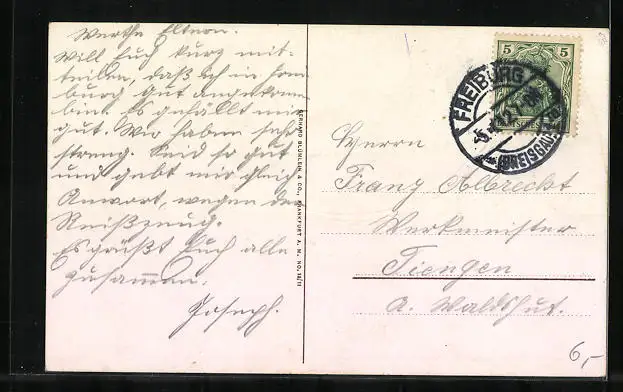 Werthe Eltern.
Will Euch kurz mit-
teilen, daß ich in Frei-
burg gut angekommen
bin. Es gefällt mir
gut. Wir haben sehr
streng. Seid so gut
und gebt mir gleich
Anwort, wegen dem
Reißzeug.
Es grüßt Euch alle
zusammen.
Joseph.
GERHARD BLÜMLEIN & CO., FRANKFURT A. M. NO.
5 5
FREIBURG
(BREISGAU)
Herrn
Franz Albrecht
Werkmeister
Tiengen
A. Waldshut.
6,-